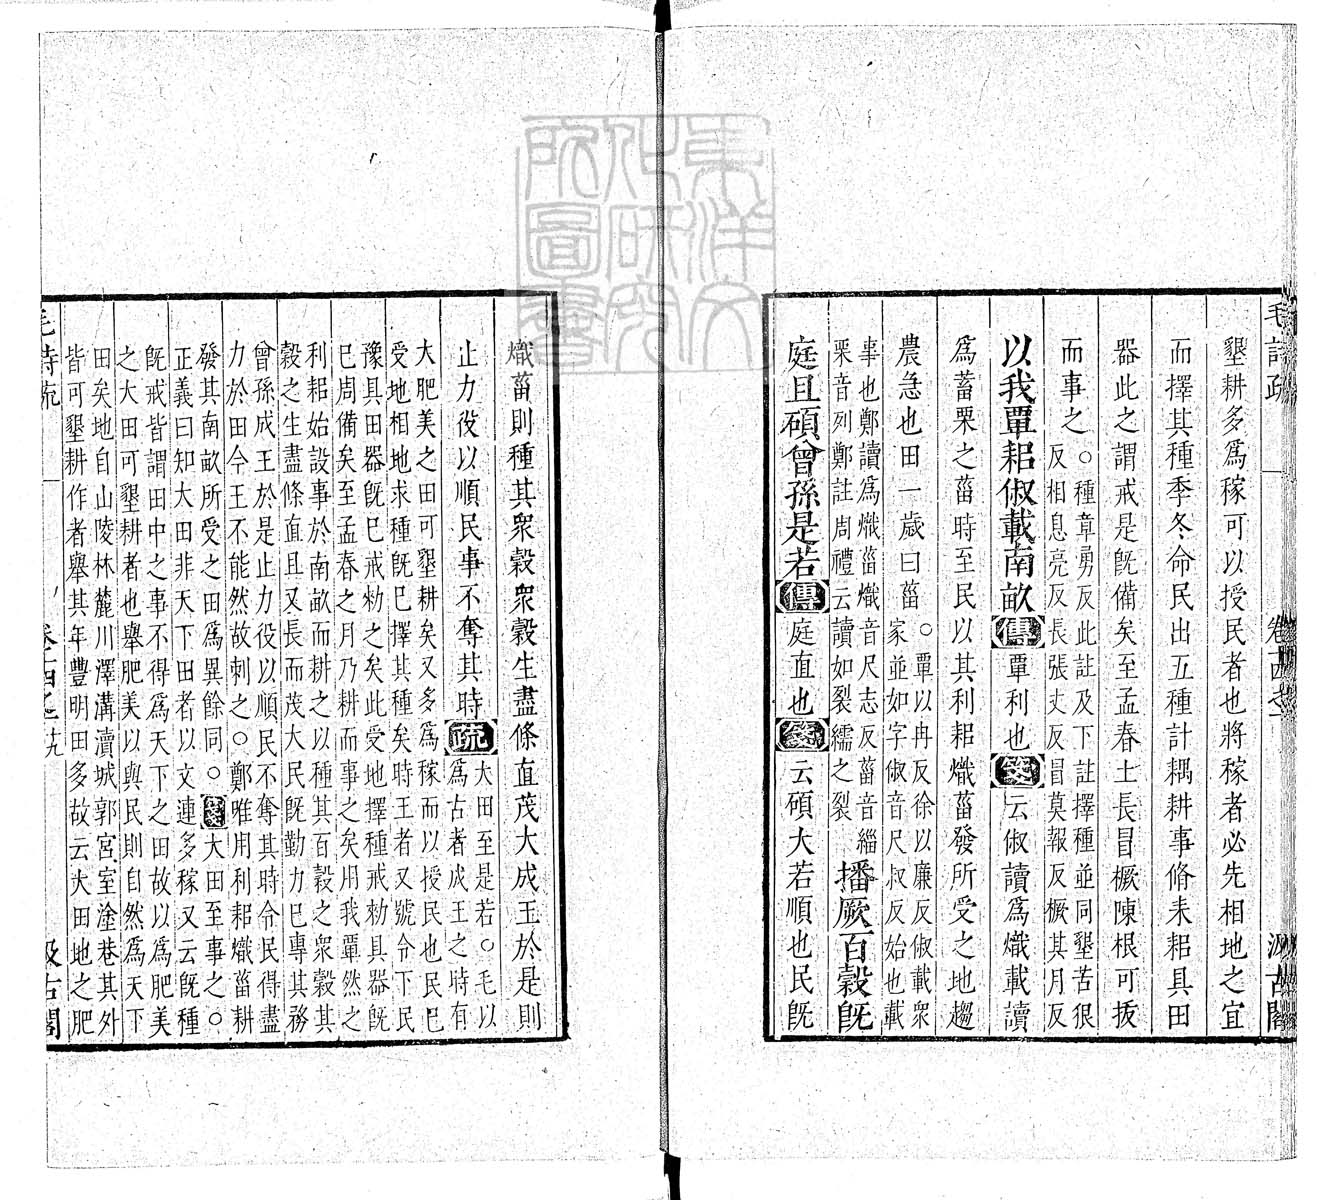 毛詩疏
卷十四之一
汲古閣
墾耕多爲稼可以授民者也將稼者必先相地之宜
而擇其種季冬命民出五種計耦耕事脩耒耜具田
器此之謂戒是旣備矣至孟春土長冒橛陳根可拔
而事之
○種章勇反此註及下註擇種並同墾苦很
反相息亮反長張丈反冒莫報反橛其月反
以我覃耜俶載南畝傳覃利也箋云俶讀爲熾載讀
爲菑栗之菑時至民以其利耜熾菑發所受之地趨
農急也田一歲曰菑
○覃以冉反徐以廉反俶載衆
家並如字俶音尺叔反始也載
事也鄭讀爲熾菑熾音尺志反菑音緇
栗音列鄭註周禮云讀如裂繻之裂
播厥百穀旣
庭且碩曾孫是若傳庭直也箋云碩大若順也民旣
熾菑則種其衆穀衆穀生盡條直茂大成王於是則
止力役以順民事不奪其時疏
大田至是若○毛以
爲古者成王之時有
大肥美之田可墾耕矣又多爲稼而以授民也民已
受地相地求種旣已擇其種矣時王者又號令下民
豫具田器旣已戒勑之矣此受地擇種戒勑具器旣
已周備矣至孟春之月乃耕而事之矣用我覃然之
利耜始設事於南畝而耕之以種其百穀之衆穀其
穀之生盡條直且又長而茂大民旣勤力已專其務
曾孫成王於是止力役以順民不奪其時令民得盡
力於田今王不能然故刺之○鄭唯用利耜熾菑耕
發其南畝所受之田爲異餘同○箋大田至事之○
正義曰知大田非天下田者以文連多稼又云旣種
旣戒皆謂田中之事不得爲天下之田故以爲肥美
之大田可墾耕者也舉肥美以與民則自然爲天下
田矣地自山陵林麓川澤溝瀆城郭宮室塗巷其外
皆可墾耕作者舉其年豐明田多故云大田地之肥
毛詩疏
卷十四之一
十九
汲古閣
東洋文化研究所圖書